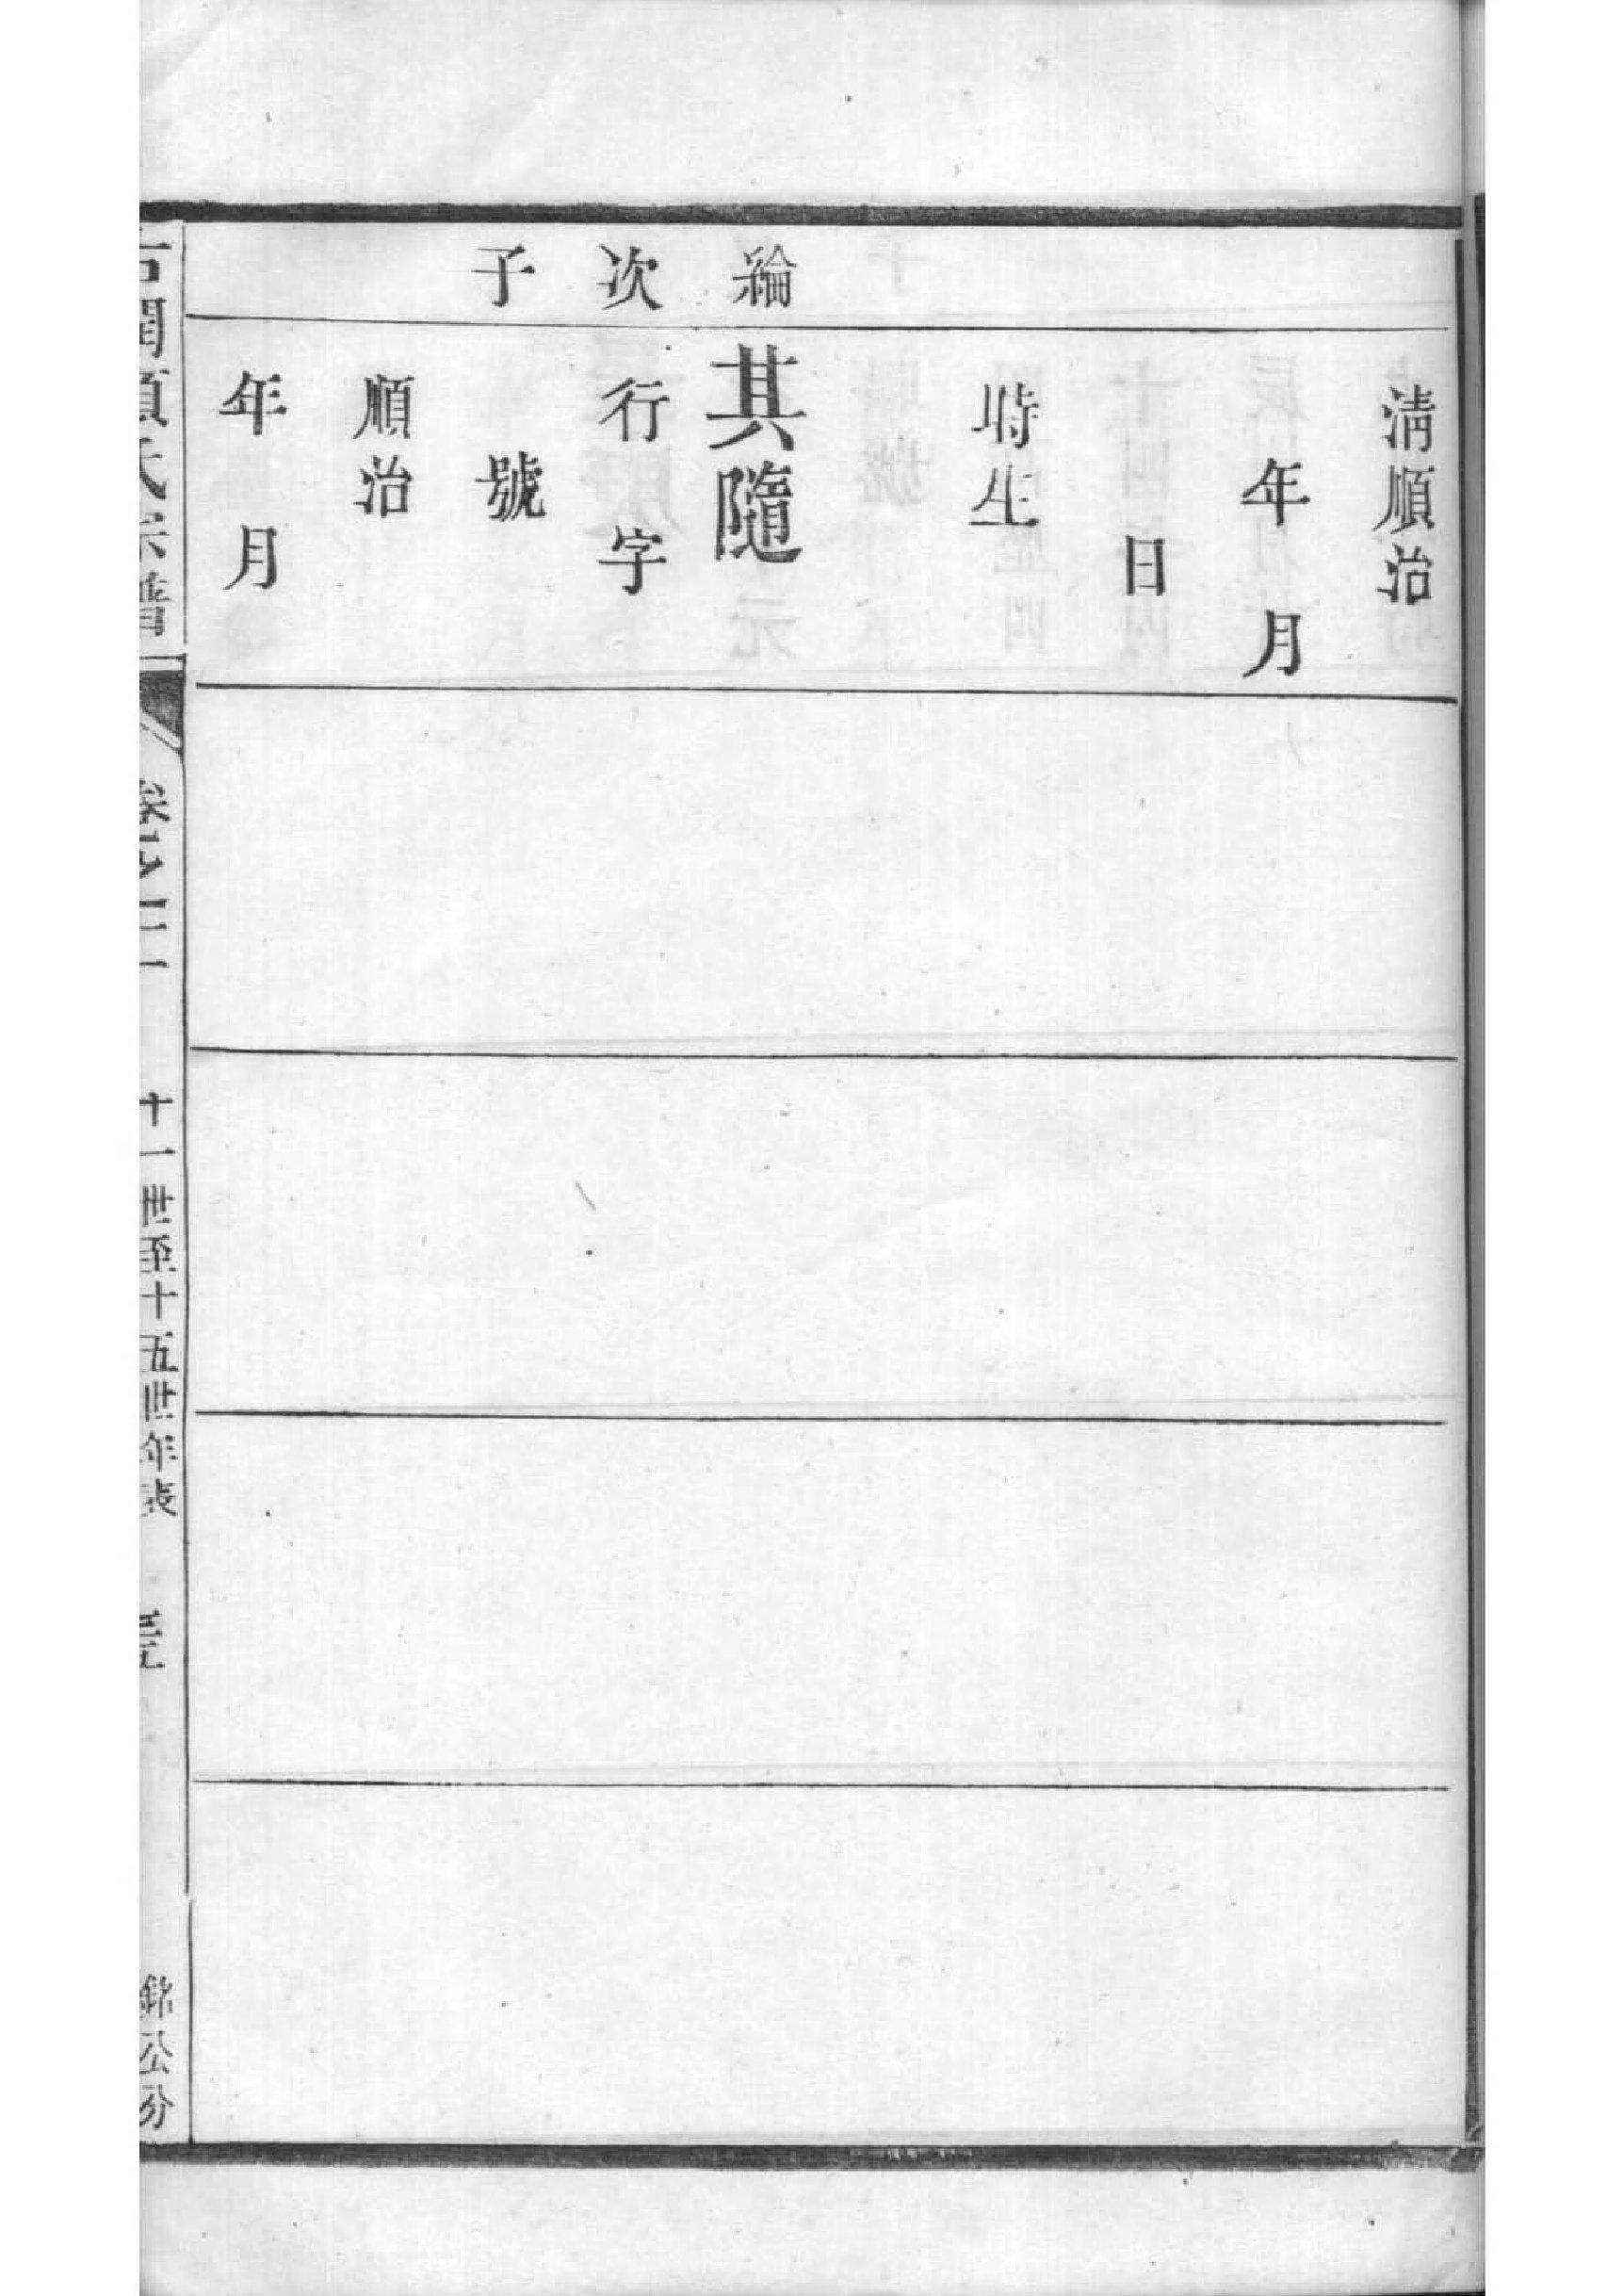 清順治
年月
日
時生
綸
其隨
次
行字
子
號
順治
年月
氏宗譜
卷之二
十一世至十五世年表
銘公分